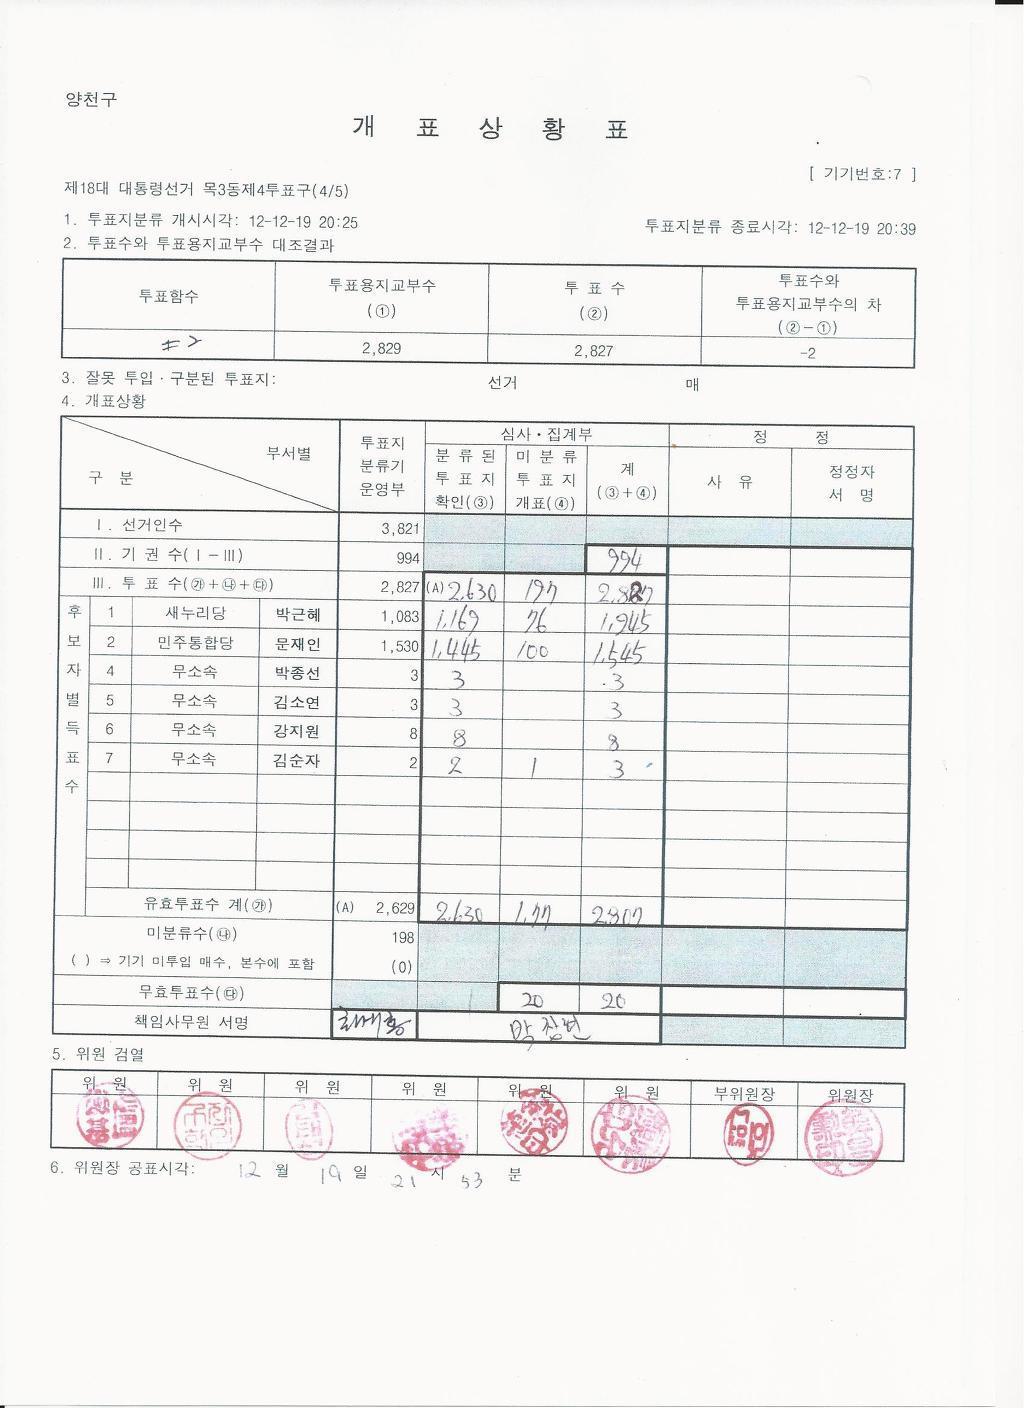 양천구
개 표 상 황 표
[ 기기번호:7 ]
제18대 대통령선거 목3동제4투표구(4/5)
1. 투표지분류 개시시각: 12-12-19 20:25 투표지분류 종료시각: 12-12-19 20:39
2. 투표수와 투표용지교부수 대조결과
투표함수 투표용지교부수 (①) 투 표 수 (②) 투표수와 투표용지교부수의 차 (②-①)
2,829 2,827 -2
3. 잘못 투입·구분된 투표지: 선거 매
4. 개표상황
부서별 구 분 투표지 분류기 운영부 심사·집계부 정 정
분 류 된 투 표 지 확인(③) 미 분 류 투 표 지 개표(④) 계 (③+④) 사 유 정정자 서 명
Ⅰ. 선거인수 3,821
Ⅱ. 기 권 수(Ⅰ-Ⅲ) 994 994
Ⅲ. 투 표 수(㉮+㉯+㉰) 2,827 (A) 2,630 197 2,827
후보자별득표수
1 새누리당 박근혜 1,083 1,169 76 1,945
2 민주통합당 문재인 1,530 1,445 100 1,545
4 무소속 박종선 3 3 3
5 무소속 김소연 3 3 3
6 무소속 강지원 8 8 8
7 무소속 김순자 2 2 1 3
유효투표수 계(㉮) (A) 2,629 2,630 1,77 2,807
미분류수(㉯) 198
( ) ⇒ 기기 미투입 매수, 본수에 포함 (0)
무효투표수(㉰) 20 20
책임사무원 서명
5. 위원 검열
위 원 위 원 위 원 위 원 위 원 위 원 부위원장 위원장
6. 위원장 공표시각: 12 월 19 일 21 시 53 분